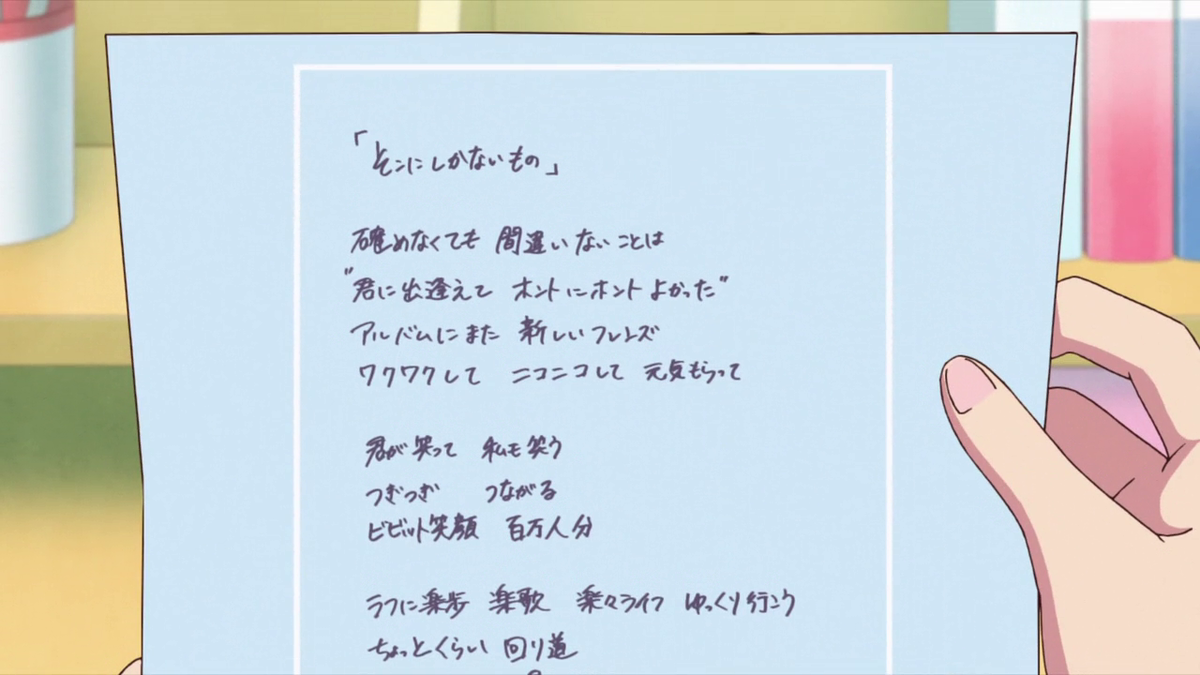 「そこにしかないもの」
確めなくても 間違いないことは
"君に出逢えて ホントにホントよかった"
アルバムにまた 新しいフレンズ
ワクワクして ニコニコして 元気もらって
君が笑って 私も笑う
つぎつぎ つながる
ビビット笑顔 百万人分
ラフに楽歩 楽歌 楽々ライフ ゆっくり行こう
ちょっとくらい 回り道